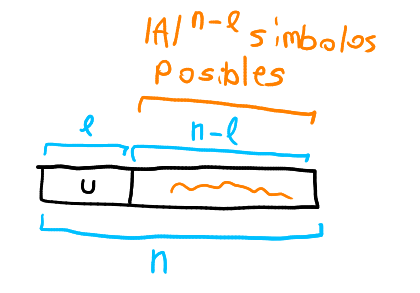 |A|^n-ℓ simbolos
Posibles
ℓ n-ℓ
u
n